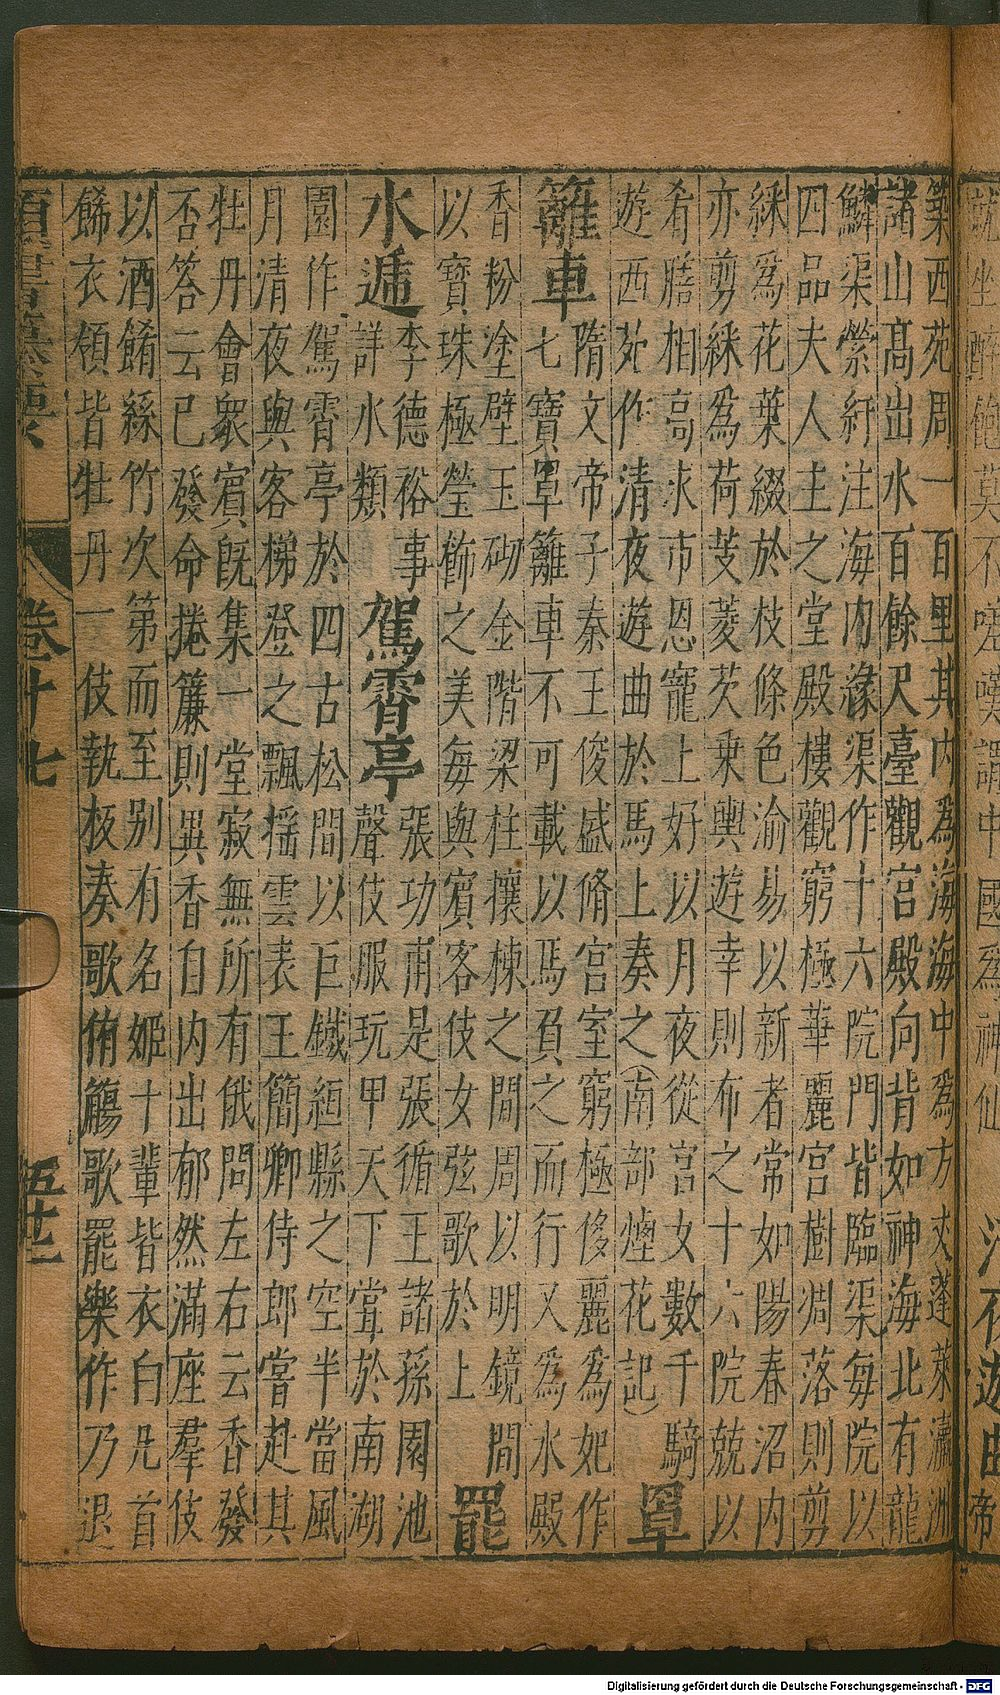 築西苑周一百里其内為海海中為方丈蓬萊瀛洲
諸山髙出水百餘尺臺觀宫殿向背如神海北有龍
鱗渠縈紆注海内緣渠作十六院門皆臨渠每院以
四品夫人主之堂殿樓觀窮極華麗宫樹凋落則剪
綵為花葉綴於枝條色渝易以新者常如陽春沼内
亦剪綵為荷芰菱芡乘輿遊幸則布之十六院兢以
肴膳相高求市恩寵上好以月夜從宫女數千騎
遊西苑作清夜遊曲於馬上奏之(南部煙花記) 罩
籬車 隋文帝子秦王俊盛脩宫室窮極侈麗為妃作
七寶罩籬車不可載以馬負之而行又為水殿
香粉塗壁玉砌金階梁柱攘棟之間周以明鏡間
以寶珠極瑩餙之美每與賓客伎女弦歌於上 罷
水遞 李德裕事
詳水類 駕霄亭 張功甫是張循王諸孫園池
聲伎服玩甲天下嘗於南湖
園作駕霄亭於四古松間以巨鐵絙縣之空半當風
月清夜與客梯登之飄揺雲表王簡卿侍郎嘗赴其
牡丹會衆賓既集一堂寂無所有俄問左右云香發
否答云已發命捲簾則異香自内出郁然滿座羣伎
以酒餚絲竹次第而至别有名姬十輩皆衣白凡首
餙衣領皆牡丹一伎執板奏歌侑觴歌罷樂作乃退
卷十七
五十二
Digitalisierung gefördert durch die Deutsche Forschungsgemeinschaft - DFG